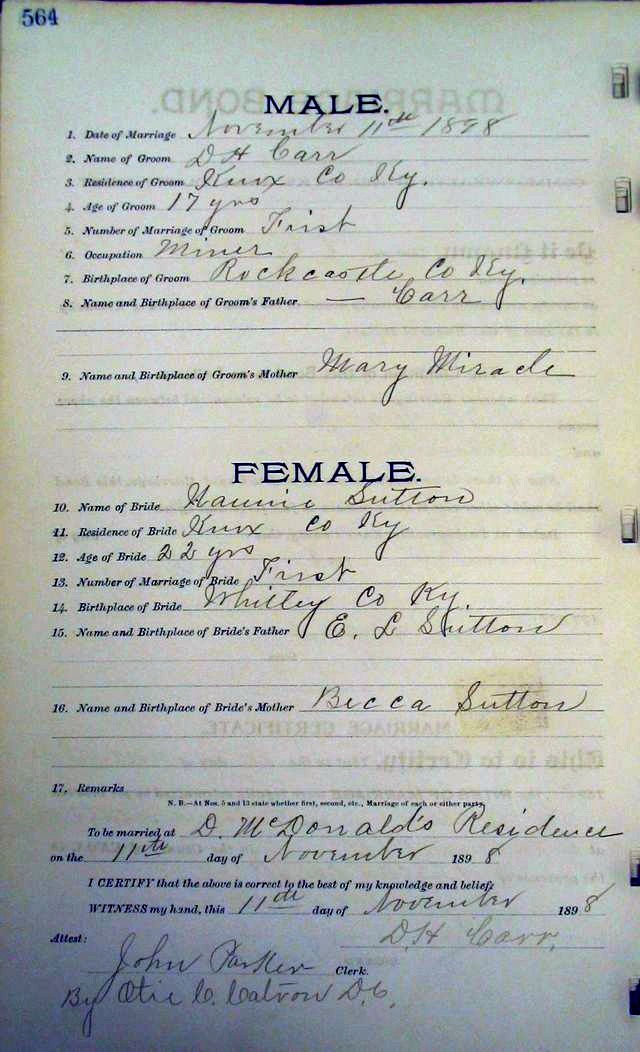 564
MALE.
1. Date of Marriage November 11th 1898
2. Name of Groom D H Carr
3. Residence of Groom Knox Co Ky.
4. Age of Groom 17 yrs
5. Number of Marriage of Groom First
6. Occupation Miner
7. Birthplace of Groom Rockcastle Co Ky.
8. Name and Birthplace of Groom's Father — Carr
9. Name and Birthplace of Groom's Mother Mary Miracle
FEMALE.
10. Name of Bride Nannie Sutton
11. Residence of Bride Knox Co Ky
12. Age of Bride 22 yrs
13. Number of Marriage of Bride First
14. Birthplace of Bride Whitley Co Ky.
15. Name and Birthplace of Bride's Father E. L Sutton
16. Name and Birthplace of Bride's Mother Becca Sutton
17. Remarks
N. B.—At Nos. 5 and 13 state whether first, second, etc., Marriage of each or either party.
To be married at D. McDonald's Residence
on the 11th day of November 1898
I CERTIFY that the above is correct to the best of my knowledge and belief.
WITNESS my hand, this 11th day of November 1898
D.H Carr.
Attest:
John Parker Clerk.
By Otie C. Catron D.C.